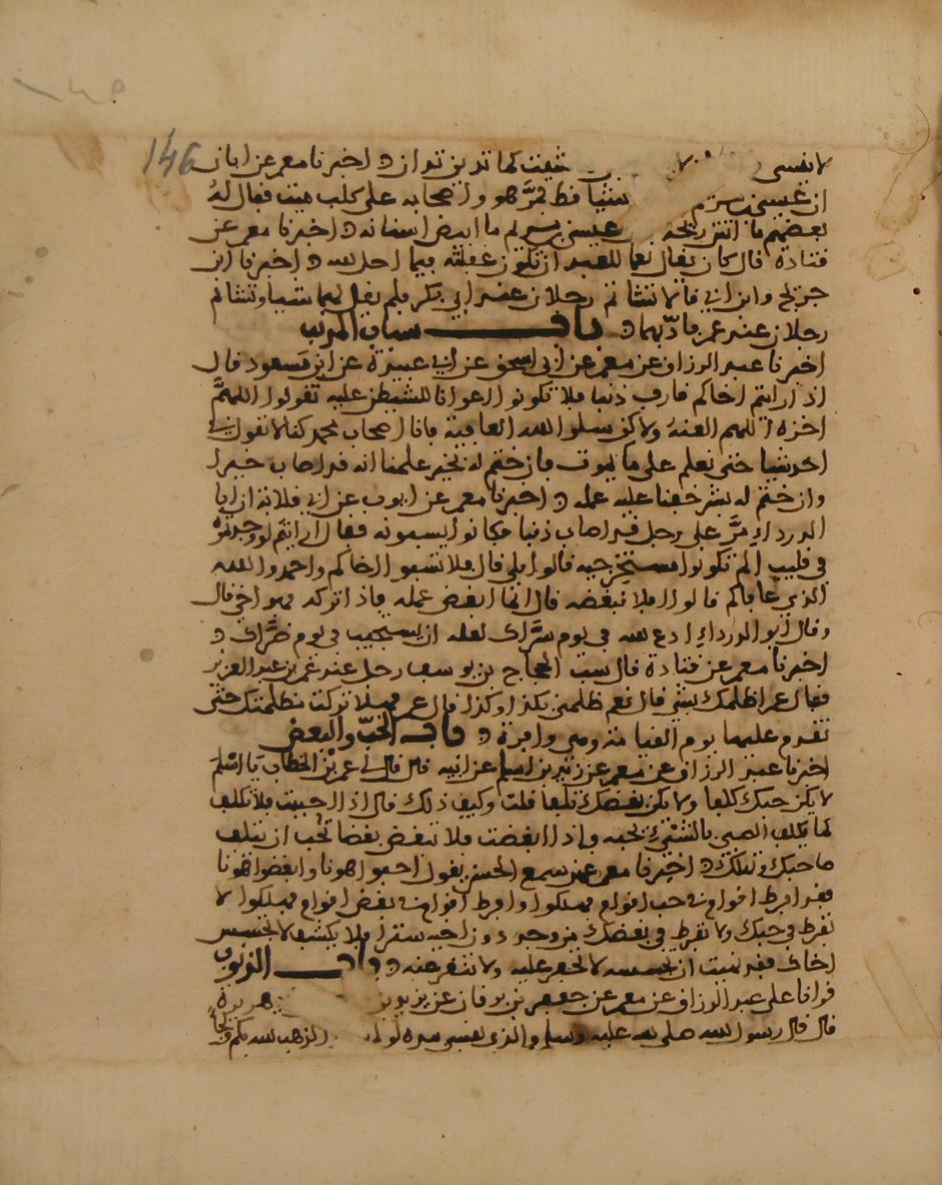 146
لا يفنى شئت كما تدين تدان واخبرنا معمر عن ابان
ان عيسى بن مريم شيئا قط فمرَّ هو واصحابه على كلب ميت فقال له
بعضهم ما انتن ريحه عيسى بن مريم ما ابيض اسنانه واخبرنا معمر عن
قتادة قال كان يقال نعما للعبد ان تكون غفلته فيما احل الله واخبرنا ابن
جريج وابن ابي قالا تشاتم رجلان عند ابي بكر فلم يقل لهما شيئا وتشاتم
رجلان عند عمر فادّبهما باب سباب المذنب
اخبرنا عبد الرزاق عن معمر عن ابي اسحق عن ابي عبيدة عن ابن مسعود قال
اذا رايتم اخاكم قارف ذنبا فلا تكونوا اعوانا للشيطن عليه تقولوا اللهمَّ
اخزه اللهم العنهُ ولاكن سلوا الله العافية فانا اصحاب محمد كنا لا نقول في
احد شيئا حتى نعلم على ما يموت فان ختم له بخير علمنا انه قد اصاب خيرا
وان ختم له بشر خفنا عليه عمله واخبرنا معمر عن ايوب عن ابي قلابة ان ابا
الدرداء مرَّ على رجل قد اصاب ذنبا فكانوا يسبونه فقال ارايتم لو وجدتموه
في قليب الم تكونوا مستخرجيه قالوا بلى قال فلا تسبوا اخاكم واحمدوا الله
الذي عافاكم قالوا افلا نبغضه قال انما ابغض عمله فاذا تركه فهو اخي قال
وقال ابو الدرداء ادع الله في يوم سرَّائك لعله ان يستجيب في يوم ضرَّائك
اخبرنا معمر عن قتادة قال سب الحجاج بن يوسف رجل عند عمر بن عبد العزيز
فقال عمر اظلمك بشي قال نعم ظلمني بكذا وكذا قال عمر فهلا تركت مظلمتك حتى
تقدم عليها يوم القيامة وهي وافرة باب الحبّ والبغض
اخبرنا عبد الرزاق عن معمر عن زيد بن اسلم عن ابيه قال قال لي عمر بن الخطاب يا اسلم
لا يكن حبك كلفا ولا يكن بغضك تلفا قلت وكيف ذلك قال اذا احببت فلا تكلف
كما يكلف الصبي بالشيء يحبه واذا ابغضت فلا تبغض بغضا تحب ان يتلف
صاحبك ويهلك اخبرنا معمر عمن سمع الحسن يقول احبوا هونا وابغضوا هونا
فقد افرط اقوام في حب اقوام فهلكوا وافرط اقوام في بغض اقوام فهلكوا لا
تفرط في حبك ولا تفرط في بغضك من وجد دون اخيه سترا فلا يكشف لا تجسس
اخاك فقد نهيت ان تجسسه لا تحفر عليه ولا تنفر عنه باب الذنوب
قرانا على عبد الرزاق عن معمر عن جعفر بن برقان عن يزيد هريرة
قال قال رسول الله صلى الله عليه وسلم والذي نفسي بيده لو لم لذهب الله بكم